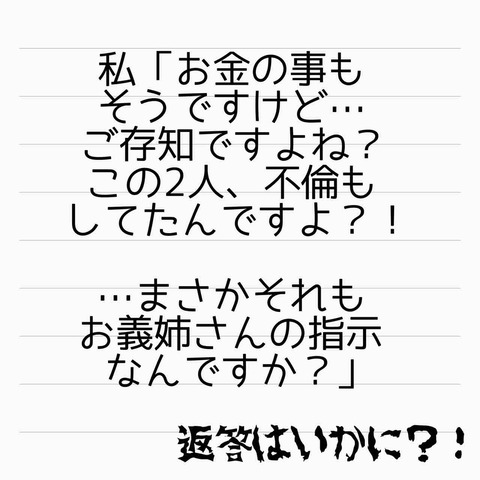 私「お金の事も
そうですけど…
ご存知ですよね？
この2人、不倫も
してたんですよ？！
…まさかそれも
お義姉さんの指示
なんですか？」
返答はいかに？！